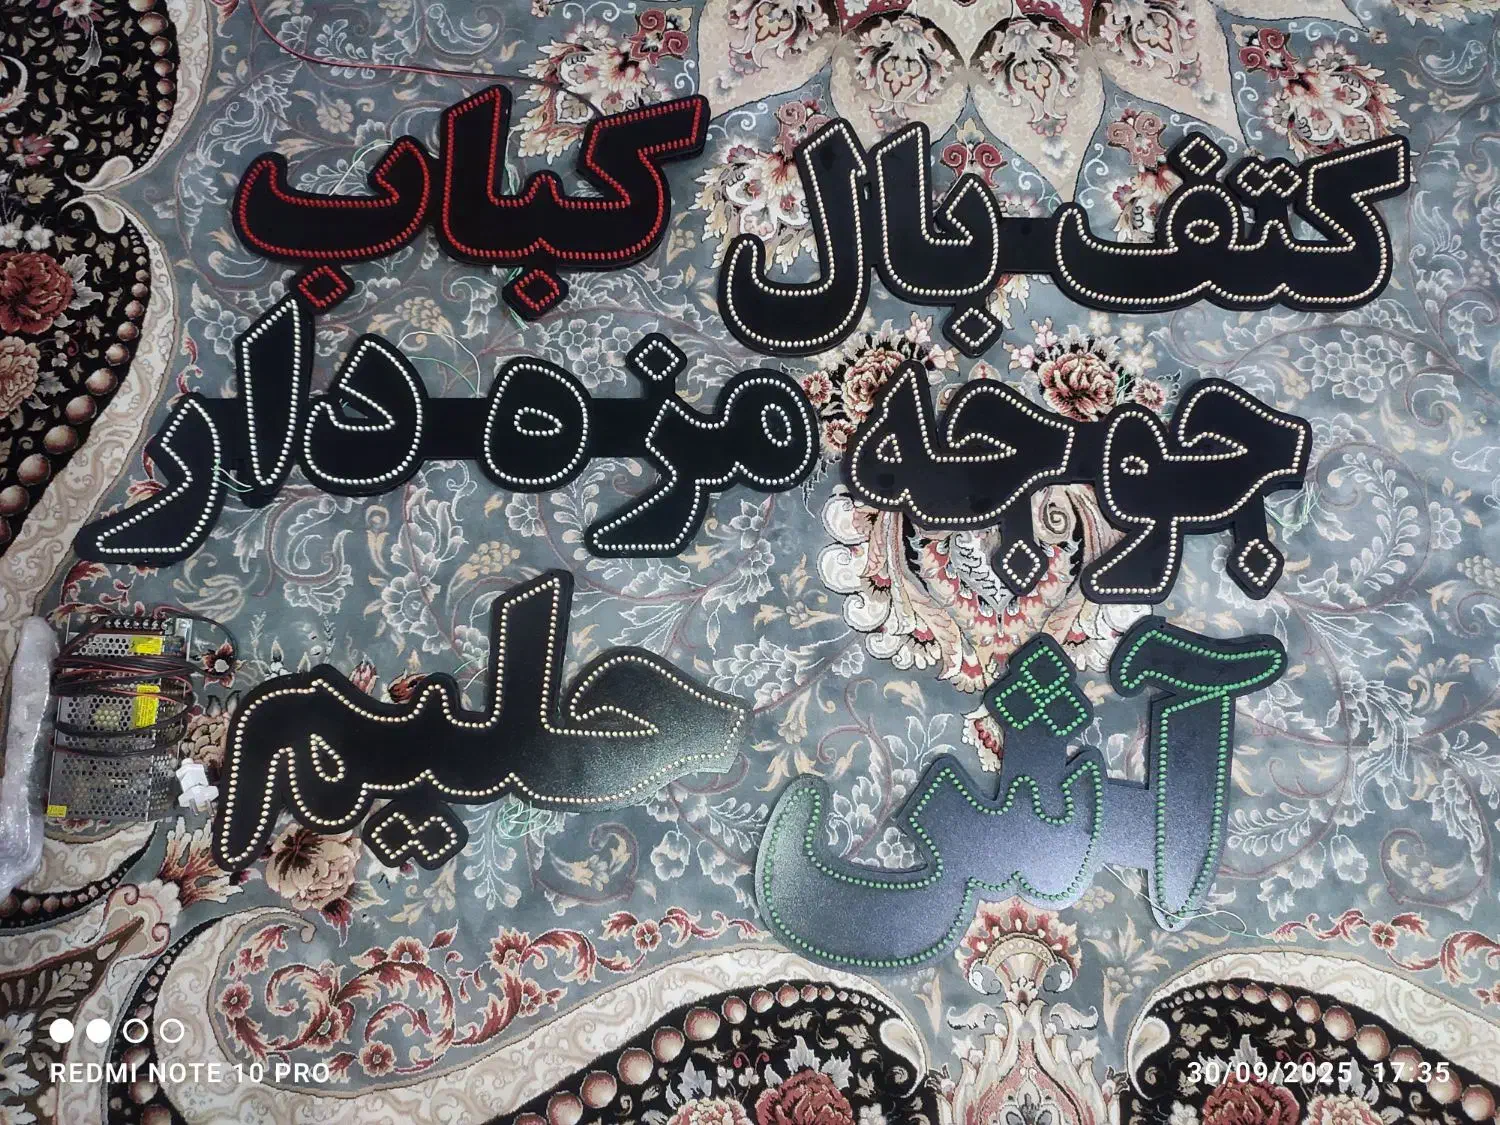 کتف بال کباب
جوجه مزه دار
آش حلیم
REDMI NOTE 10 PRO
30/09/2025 17:35